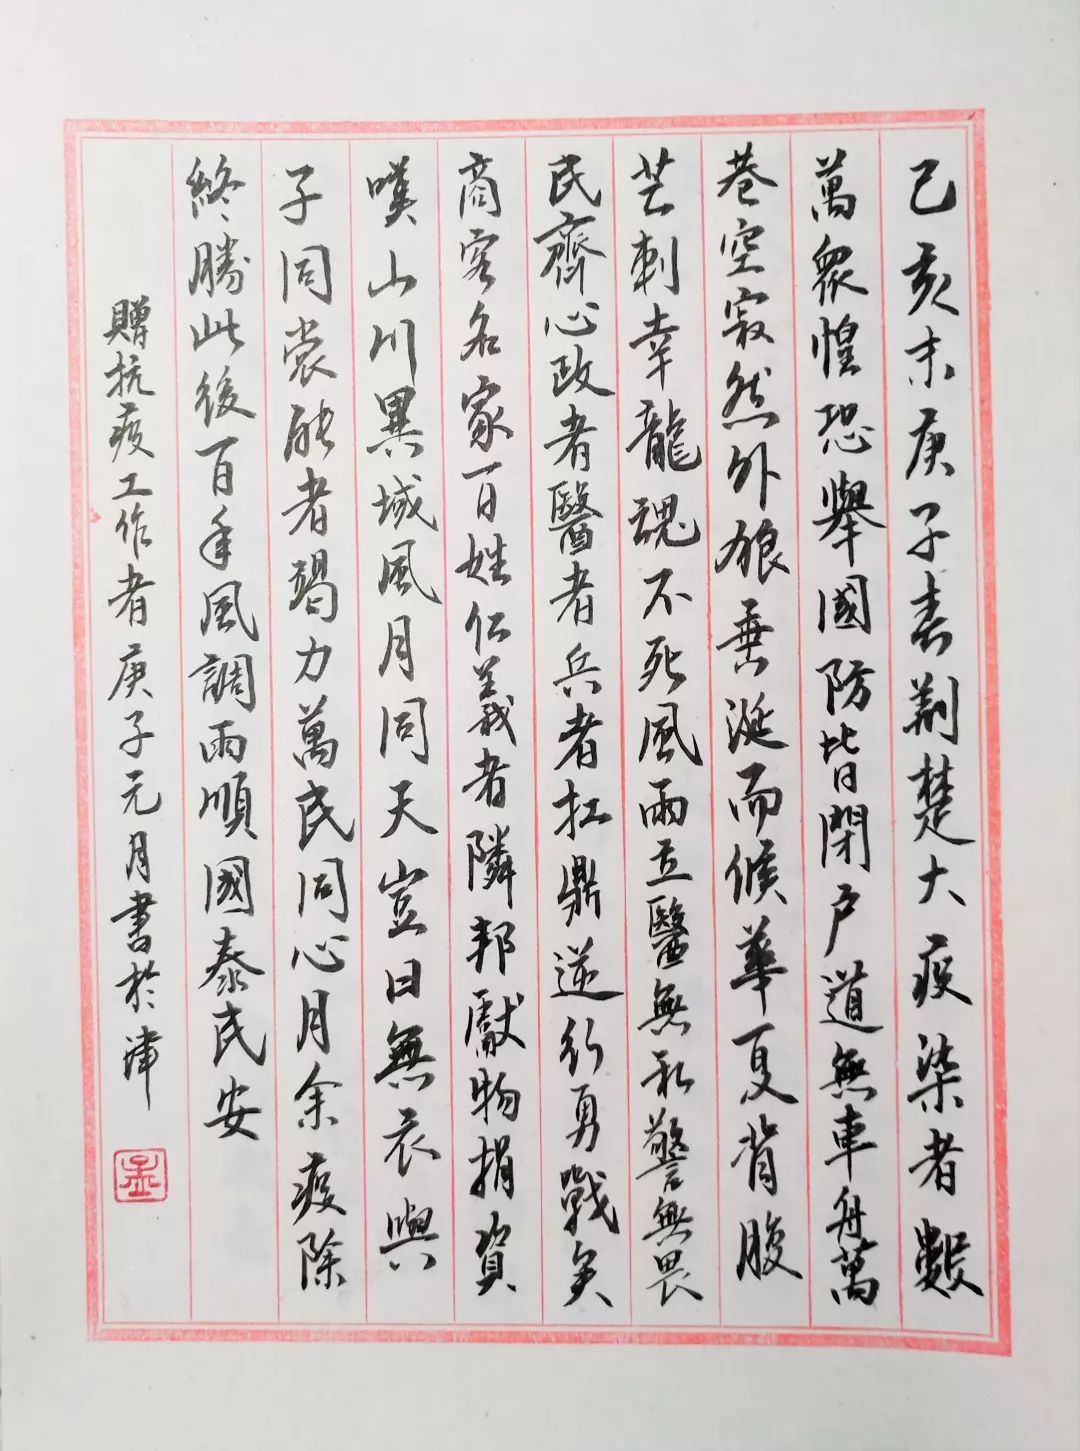 己亥末庚子春荆楚大疫染者數
萬眾惶恐舉國防皆閉户道無車舟萬
巷空寂然外狼垂涎而候華夏背腹
芒刺幸龍魂不死風雨立醫無私警無畏
民齊心政者醫者兵者扛鼎逆行勇戰矣
商客名家百姓仁義者隣邦獻物捐資
嘆山川異域風月同天豈曰無衣與
子同裳能者竭力萬民同心月余疫除
終勝此後百年風調雨順國泰民安
贈抗疫工作者庚子元月書於津